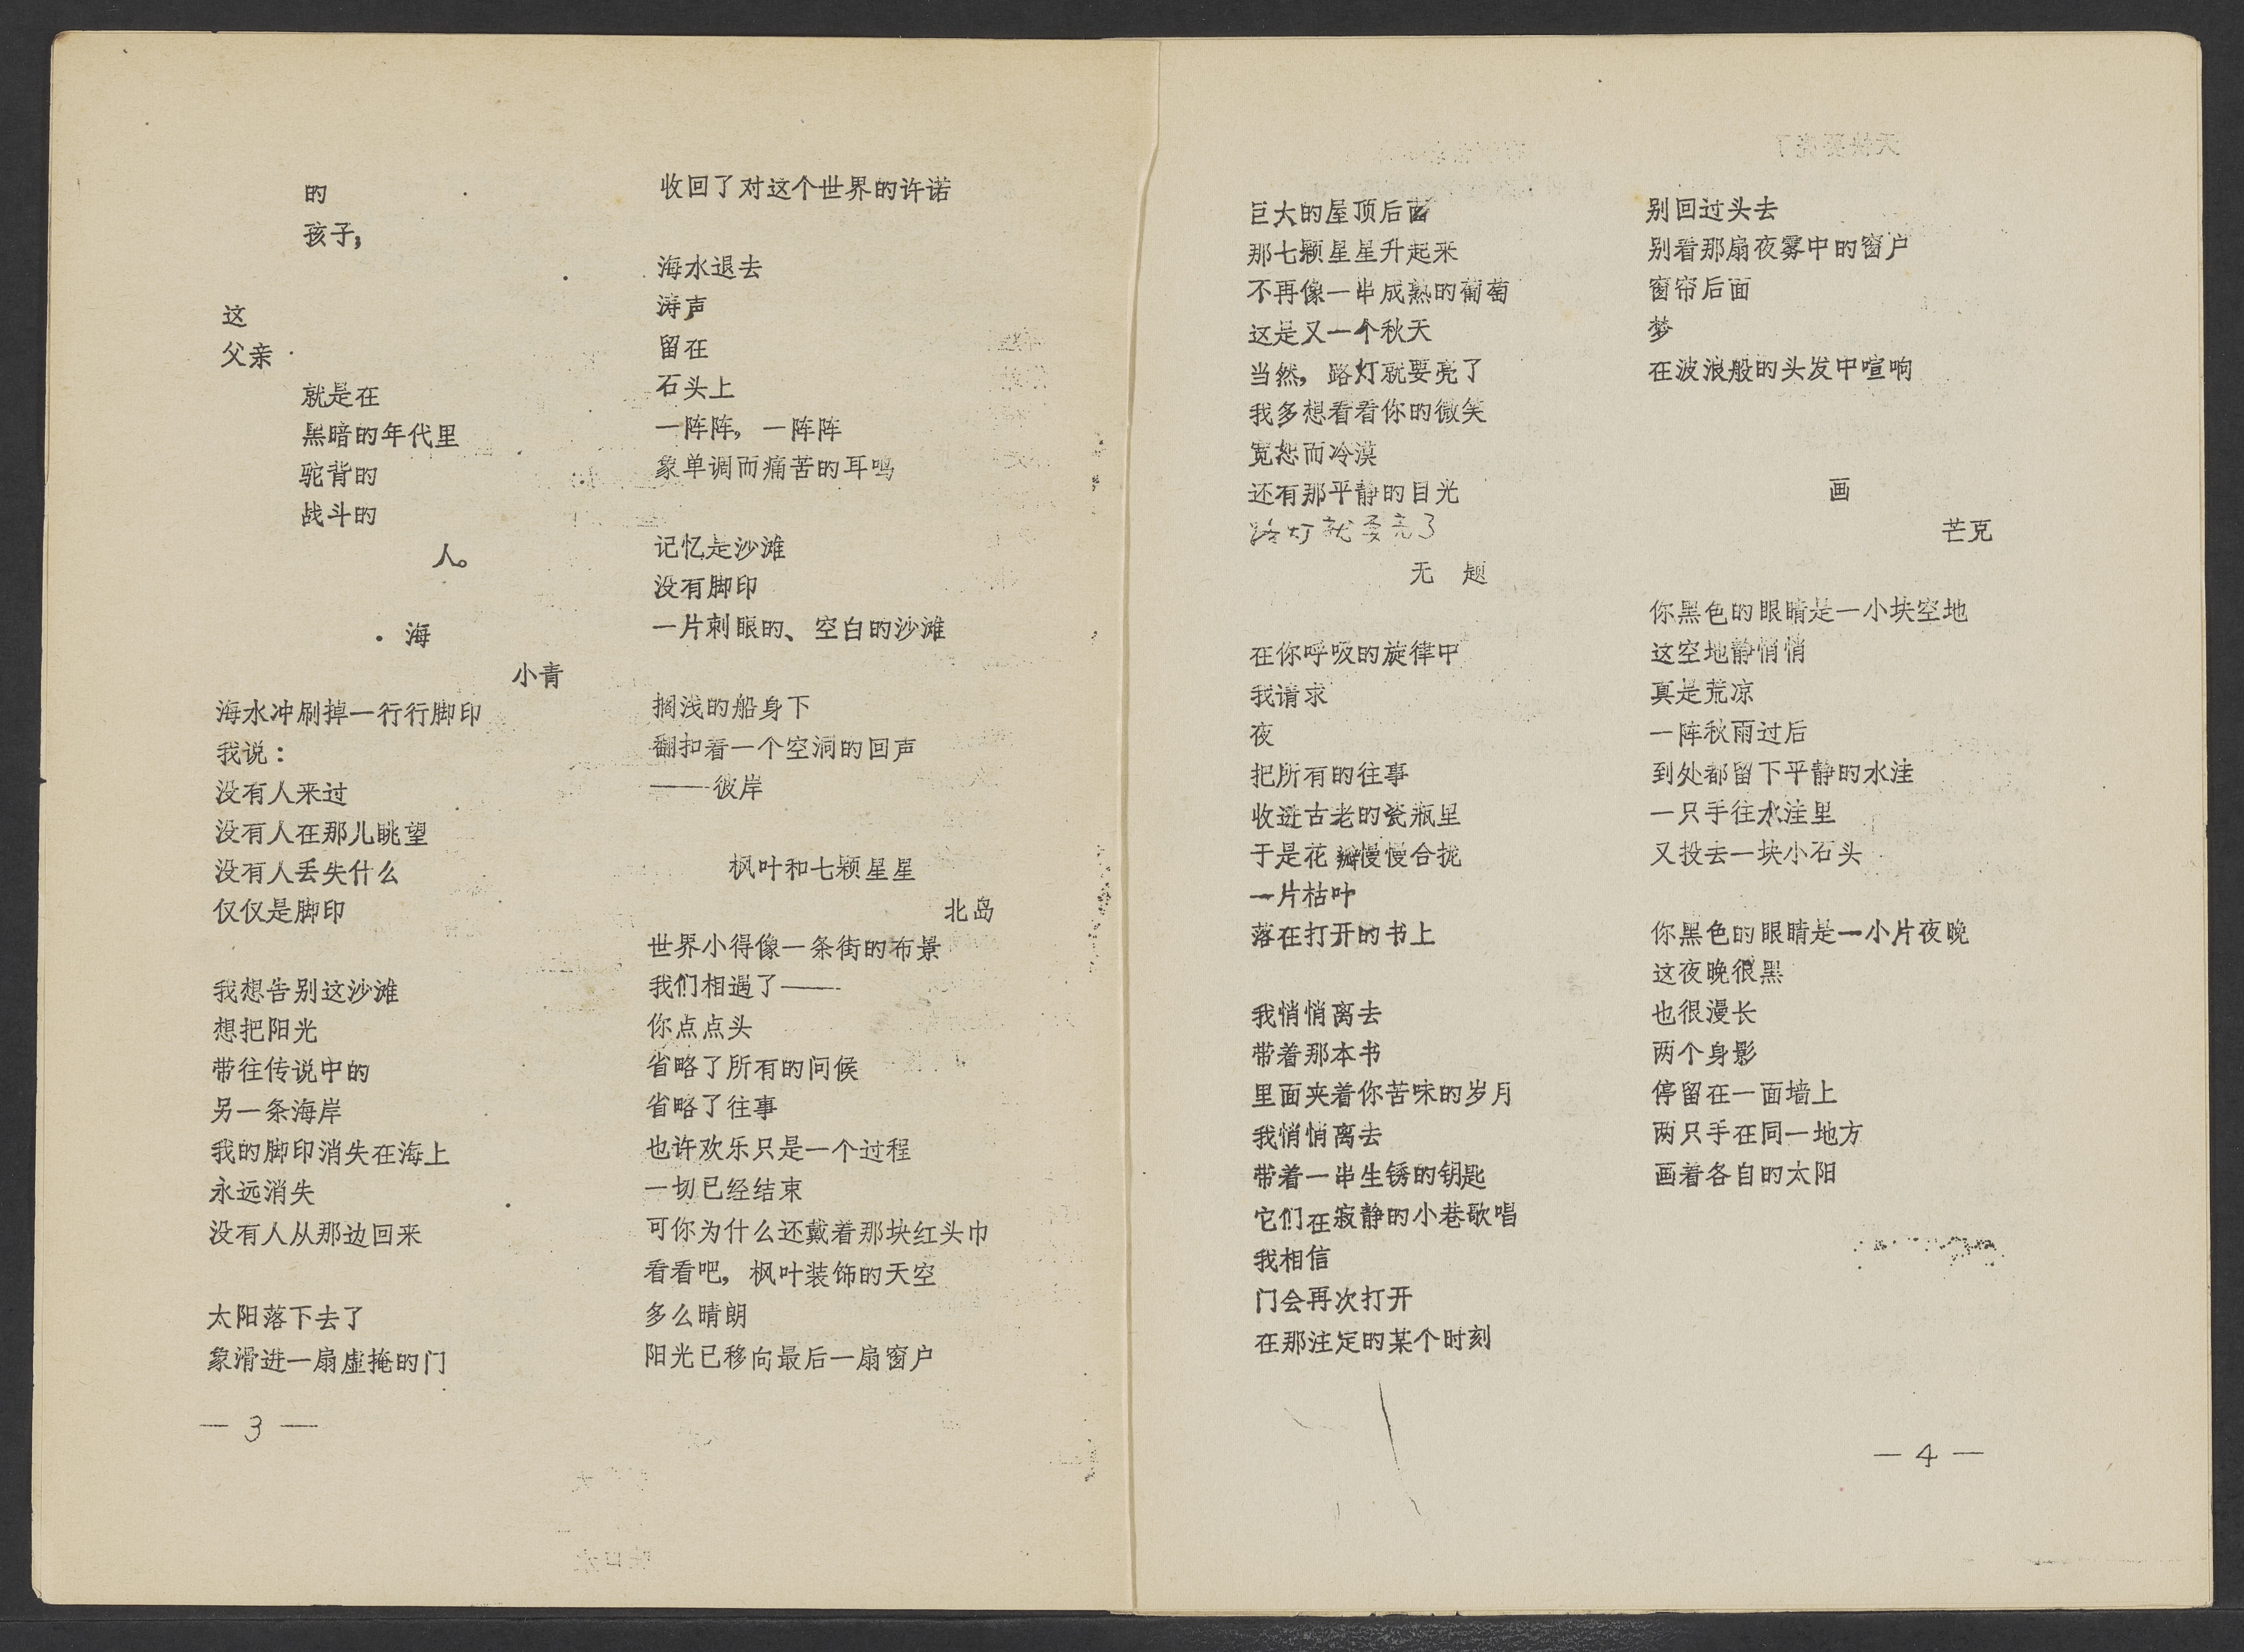 的
孩子，
这
父亲
就是在
黑暗的年代里
驼背的
战斗的
人。
海
小青
海水冲刷掉一行行脚印
我说：
没有人来过
没有人在那儿眺望
没有人丢失什么
仅仅是脚印
我想告别这沙滩
想把阳光
带往传说中的
另一条海岸
我的脚印消失在海上
永远消失
没有人从那边回来
太阳落下去了
象滑进一扇虚掩的门
— 3 —
收回了对这个世界的许诺
海水退去
涛声
留在
石头上
一阵阵，一阵阵
象单调而痛苦的耳鸣
记忆是沙滩
没有脚印
一片刺眼的、空白的沙滩
搁浅的船身下
翻扣着一个空洞的回声
——彼岸
枫叶和七颗星星
北岛
世界小得像一条街的布景
我们相遇了——
你点点头
省略了所有的问候
省略了往事
也许欢乐只是一个过程
一切已经结束
可你为什么还戴着那块红头巾
看看吧，枫叶装饰的天空
多么晴朗
阳光已移向最后一扇窗户
巨大的屋顶后面
那七颗星星升起来
不再像一串成熟的葡萄
这是又一个秋天
当然，路灯就要亮了
我多想看看你的微笑
宽恕而冷漠
还有那平静的目光
路灯就要亮了
无　题
在你呼吸的旋律中
我请求
夜
把所有的往事
收进古老的瓷瓶里
于是花瓣慢慢合拢
一片枯叶
落在打开的书上
我悄悄离去
带着那本书
里面夹着你苦味的岁月
我悄悄离去
带着一串生锈的钥匙
它们在寂静的小巷歌唱
我相信
门会再次打开
在那注定的某个时刻
别回过头去
别看那扇夜雾中的窗户
窗帘后面
梦
在波浪般的头发中喧响
画
芒克
你黑色的眼睛是一小块空地
这空地静悄悄
真是荒凉
一阵秋雨过后
到处都留下平静的水洼
一只手往水洼里
又投去一块小石头
你黑色的眼睛是一小片夜晚
这夜晚很黑
也很漫长
两个身影
停留在一面墙上
两只手在同一地方
画着各自的太阳
— 4 —